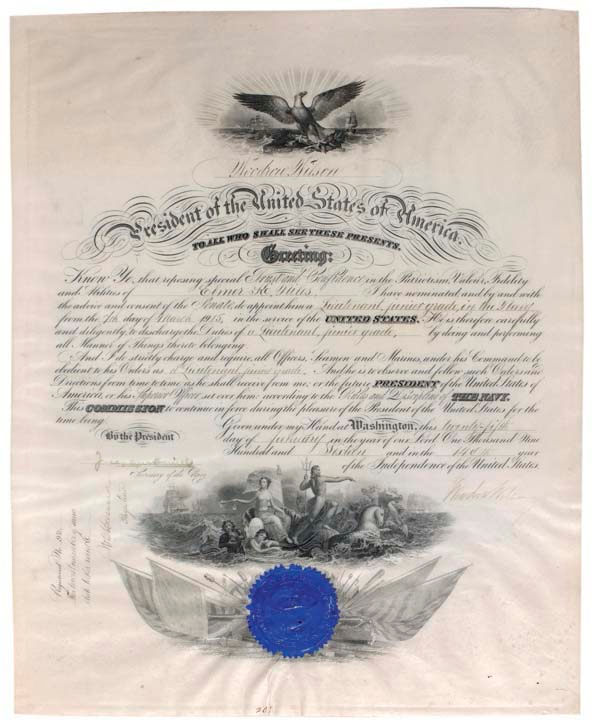 Woodrow Wilson
President of the United States of America.
TO ALL WHO SHALL SEE THESE PRESENTS,
Greeting:
Know Ye, that reposing special Trust and Confidence in the Patriotism, Valour, Fidelity
and Abilities of Elmer I have nominated and by and with
the advice and consent of the Senate, do appoint him a Lieutenant, junior grade, in the Navy
from the 7th day of March 1915, in the service of the UNITED STATES. He is therefore carefully
and diligently to discharge the Duties of a Lieutenant, junior grade, by doing and performing
all Manner of Things thereto belonging.
And I do strictly charge and require all Officers, Seamen and Marines, under his Command to be
obedient to his Orders as a Lieutenant, junior grade. And he is to observe and follow such Orders and
Directions from time to time as he shall receive from me, or the future PRESIDENT of the United States of
America, or his Superior Officer set over him, according to the Rules and Discipline of THE NAVY.
This COMMISSION to continue in force during the pleasure of the President of the United States for the
time being.
Given under my Hand at Washington, this twenty-fifth
By the President
day of in the year of our Lord One Thousand Nine
Hundred and Sixteen and in the 140th year
of the Independence of the United States.
Secretary of the Navy